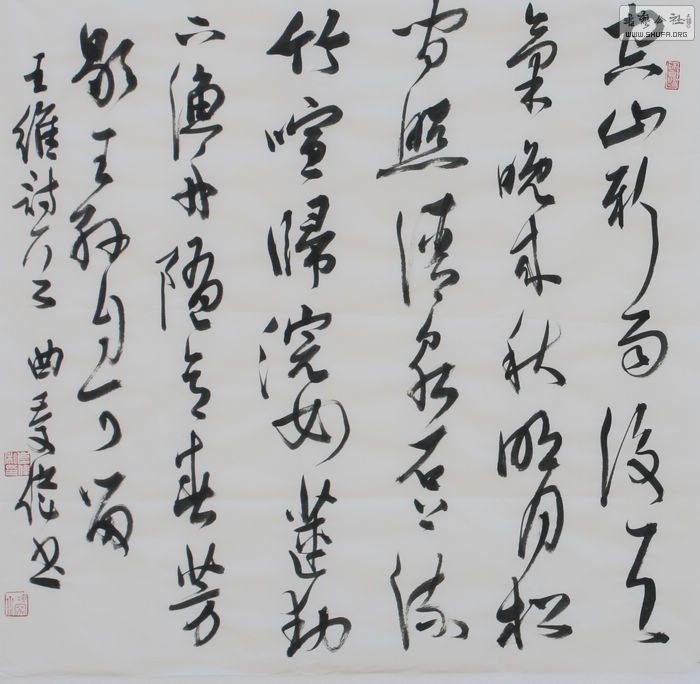 空山新雨後天
氣晚來秋明月松
間照清泉石上流
竹喧歸浣女蓮動
下漁舟隨意春芳
歇王孫自可留
王維詩 曲 偉书
書藝公社
WWW.SHUFA.ORG